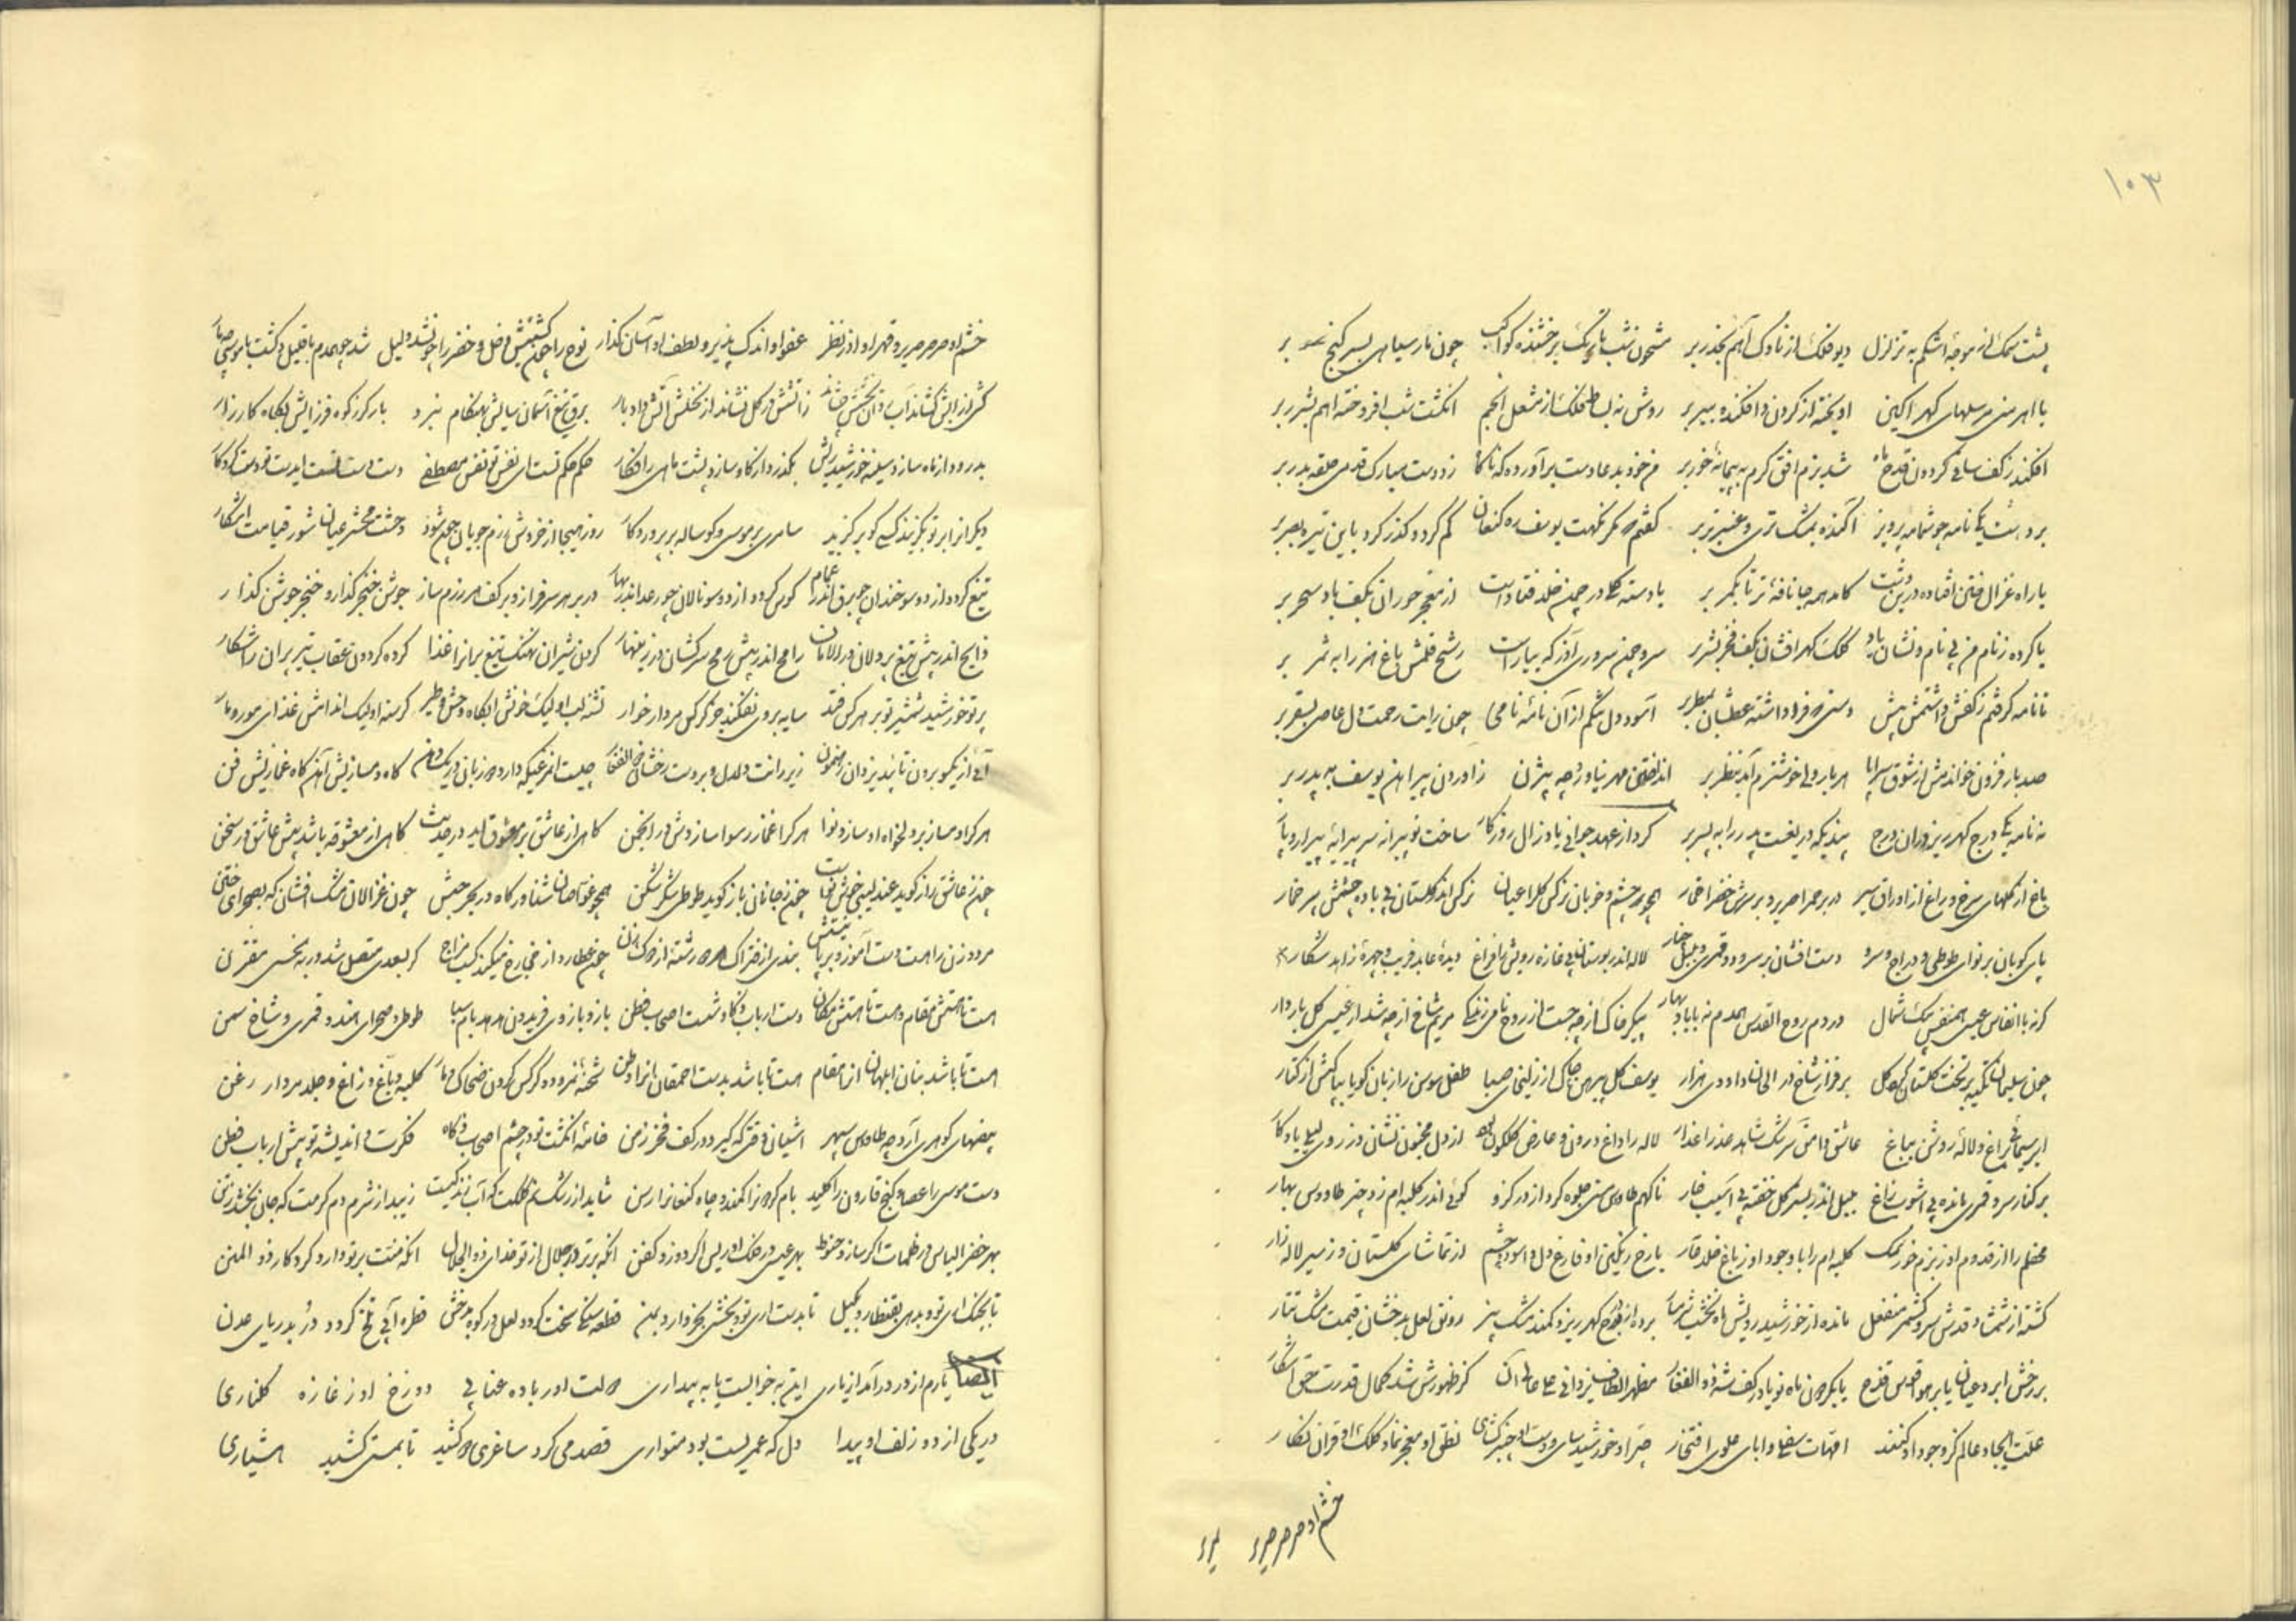 ۱۰۳
پشت سمک از موجهٔ اشکم به تزلزل دیو فلک از ناوک آهم بحذر بر مشحون شب تاریک برخشنده کواکب چون مار سیاهی بسر گنج بر
با اهرمنی مرسلهای گهر آکین آویخته از گردن و افکنده ببر بر روش نه لب از مشعل انجم انگشت شب افروخته اهم بشرر بر
افکند ز کف ساقی گردون قدح ماه شد بزم افق کرم به پیمانهٔ خور بر من خود بدعا دست برآورده که ناگاه زد دست مبارک قدمی حلقه بدر بر
بر دست یکی نامه چو شمامه پرویز آکنده بمشک تری و عنبر تر بر گفتم مگر نکهت یوسف ره کنعان گم کرد و گذر کرد باین تیره بصر بر
یا راه غزال ختن افتاده درین دشت کامد همه جا نافهٔ تر تا بکمر بر یا دسته گلی در چمن خلد فتاده است از معجر حوران بکف باد سحر بر
یا کرده ز نام من بی نام و نشان یاد کلک گهرافشان بکف فخر بشر بر سرو چمن سروری آذر که بیاراست رشح قلمش باغ هنر را به ثمر بر
تا نامه گرفتم ز کفش داشتمش پیش دستی که فرا داشته عطشان بمطر بر آسود دل تنگم از آن نامهٔ نامی چون رایت رحمت دل عاصی بسقر بر
صد بار فزون خواندمش از شوق سراپا هر بار ولی خوشترم آمد بنظر بر انداختن مهر نیاورد چه بیژن ز آوردن پیراهن یوسف به پدر بر
نه نامه یکی درج گهریز در آن درج پندیکه دریغست پدر را به پسر بر کرد از عهد جوانی یاد زال روزگار ساخت نو پیرانه سر پیرایهٔ پیرار و پار
باغ از گلهای سرخ و راغ از اوراق سبز در بر حمرا حریر و بر سر خضرا خمار همچو چشم و خوبان نرگس گلرا عیان نرگس اندر گلستان بی باده چشمش پر خمار
پای کوبان بر نوای طوطی و دراج و سرو دست افشان بر سرود قمری و بلبل چنار لاله اندر بوستان بی غازه رویش را فراغ دیدهٔ عابد فریب و چهرهٔ زاهد شکار
گر نه با انفاس عیسی همنفس پیک شمال ور دم روح القدس همدم نه با باد بهار پیکر خاک از چه جست از روح نامی زندگی مریم شاخ از چه شد از عیسی گل باردار
چون سلیمان تکیه بر تخت گلستان کرد گل بر فراز شاخ در الحان داودی هزار یوسف گل پیرهن چاک از زلیخای صبا طفل سوسن را زبان گویا بپاکیش از گفتار
ابر سیمابی چراغ و لالهٔ روشن بباغ عاشق وامق سرشک شاهد عذرا عذار لاله را داغ درون و عارض گلگون بهم از دل مجنون نشان وز روی لیلی یادگار
بر کنار سرو قمری مانده بی آشوب زاغ بلبل اندر بستر گل خفته بی آسیب خار ناگهم طاوس مستی جلوه کرد از در گزو گوئی اندر کلبه‌ام زد چتر طاووس بهار
محفلم را از قدوم او ز بزم خور نمک کلبه‌ام را با وجود او ز باغ خلد عار با رخ رنگین او فارغ دل و آسوده چشم از تماشای گلستان وز سیر لاله‌زار
گشته از شمشاد قدش سرو کشمر منفعل مانده از خورشید رویش ماه نخشب شرمسار برده از درج گهرریز و کمند مشک بیز رونق لعل بدخشان قیمت مشک تتار
بر رخش ابرو عیان یا بر هوا قوس قزح یا بگردون ماه نو یا در کف شه ذوالفقار مظهر الطاف یزدانی علی عالی آنک کز ظهورش شد کمال قدرت حق آشکار
علت ایجاد عالم کز وجود او کنند امهات سفلی و آبای علوی افتخار چتر او خورشید سای و دست او خیبر گشای نطق او معجز نما و کلک او قرآن نگار
خشم او صرصر صریر
خشم او صرصر صریر و قهر او آذر نظیر عفو او اندک پذیر و لطف او آسان گذار نوح را چون کشتیش فضل و خضر را چونشد دلیل شد چو همدم با خلیل و گشت با موسی چو یار
کش از آبش کشاند آب در آتش نشاند ز آتشش در گل نشاند از نخلش آتش داد بار برق تیغ آسمان سایش بهنگام نبرد بار گرز کوه فرزایش بگاه کارزار
بدرود از ماه سازد سینه خورشید ریش بگذرد از گاو سازد پشت ماهی را فکار حکم حکم تست ای نفس تو نفس مصطفی دست دست تست ای دست تو دست کردگار
دیگر از ابر تو بگزیند کسی کو برگزید سامری بر موسی و گوساله بر پروردگار روز هیجا از خروش رزم جویان چون شود وحشت محشر عیان شور قیامت آشکار
تیغ گردد از دو سو خندان چو برق اندر غمام کوس گردد از دو سو نالان چو رعد اندر بهار در بر هر سرفراز و بر کف هر رزم ساز جوشن خنجر گذار و خنجر جوشن گذار
ذابح اندر پیش تیغ پردلان در الامان رامح اندر پیش رمح سرکشان در زینهار گردن شیران نهنگ تیغ بران را غذا کرده گردون عقاب تیر پران را شکار
پرتو خورشید شمشیر تو بر هر کس فتد سایه بر وی نفکند جز کرکس مردار خوار تشنه لب او لیک خونش آبگاه وحش و طیر گرسنه او لیک اندامش غذای مور و مار
آئی از یکسو برون تایید یزدان رهنمون زیر رانت دلدل و بر دست رخشان ذوالفقار چیست آنمرغیکه دارد دو زبان و یک دهن گاه دمسازیش آئین گاه غمازیش فن
هر کرا دمساز بر دلخواه او سازد نوا هر کرا غماز رسوا سازدش در انجمن گاهی از عاشق بر معشوق آید در حدیث گاهی از معشوقه باشد پیش عاشق در سخن
چون ز عاشق راز گوید عندلیبی خوش نواست چون ز جانان باز گوید طوطی شکر شکن همچو غواصان شناور گاه در بحر حبش چون غزالان مشک افشان گه بصحرای ختن
مرد و زن را هست دست آموز و بر پا بینمش بندی از فتراک مرد و رشته از دوک زن چون عطارد از چه رخ میکند کسب مزاج گر بسعدی متصل شد ور به نحسی مقترن
هست تا هستش مقام و هست تا هستش مکان دست ارباب ذکا و شست اصحاب فطن باز و بازوی فریدون هدهد بام سبا طوطی و صحرای هند و قمری و شاخ سمن
هست تا باشد بنان ابلهان آنرا مقام هست تا باشد بدست احمقان آنرا وطن شحنهٔ نمرود و کرکس گردن ضحاک و مار کلبه دباغ و زاغ و جلد مردار زغن
بیضهای گوهری آرد چه طاوس سپهر آشیان وقتی که گیرد در کف فخر زمن خامهٔ انگشت تو در چشم اصحاب ذکاء فکرت و اندیشهٔ تو پیش ارباب فطن
دست موسی را عصا و گنج قارون را کلید بام گردون را کمند و چاه کنعان را رسن شاید از رشک نم کلکت که آب زندگیست زیبد از شرم دم گرمت که جان بخشد بتن
بهر خضر الیاس در ظلمات اگر سازد حنوط بهر عیسی در فلک ادریس اگر دوزد کفن آنکه برتر در جلال از تو خدای ذوالجلال آنکه منت بر تو دارد کردگار ذوالمنن
تا بچنگ آری تو و بدهی بقنطار و بکیل تا بدست آری تو و بخشی بخروار و بمن قطعه سنگی سخت گردد لعل در کوه بدخش قطره آبی تلخ گردد در به دریای عدن
ایضاً یارم از در درآمد از یاری این به خوابست یا به بیداری دو لبت او ز باده عنابی دو رخ او ز غازه گلناری
در یکی از دو زلف او پیدا دل که عمریست بود متواری قصد می کرد ساغری دو کشید تا بمستی کشید هشیاری